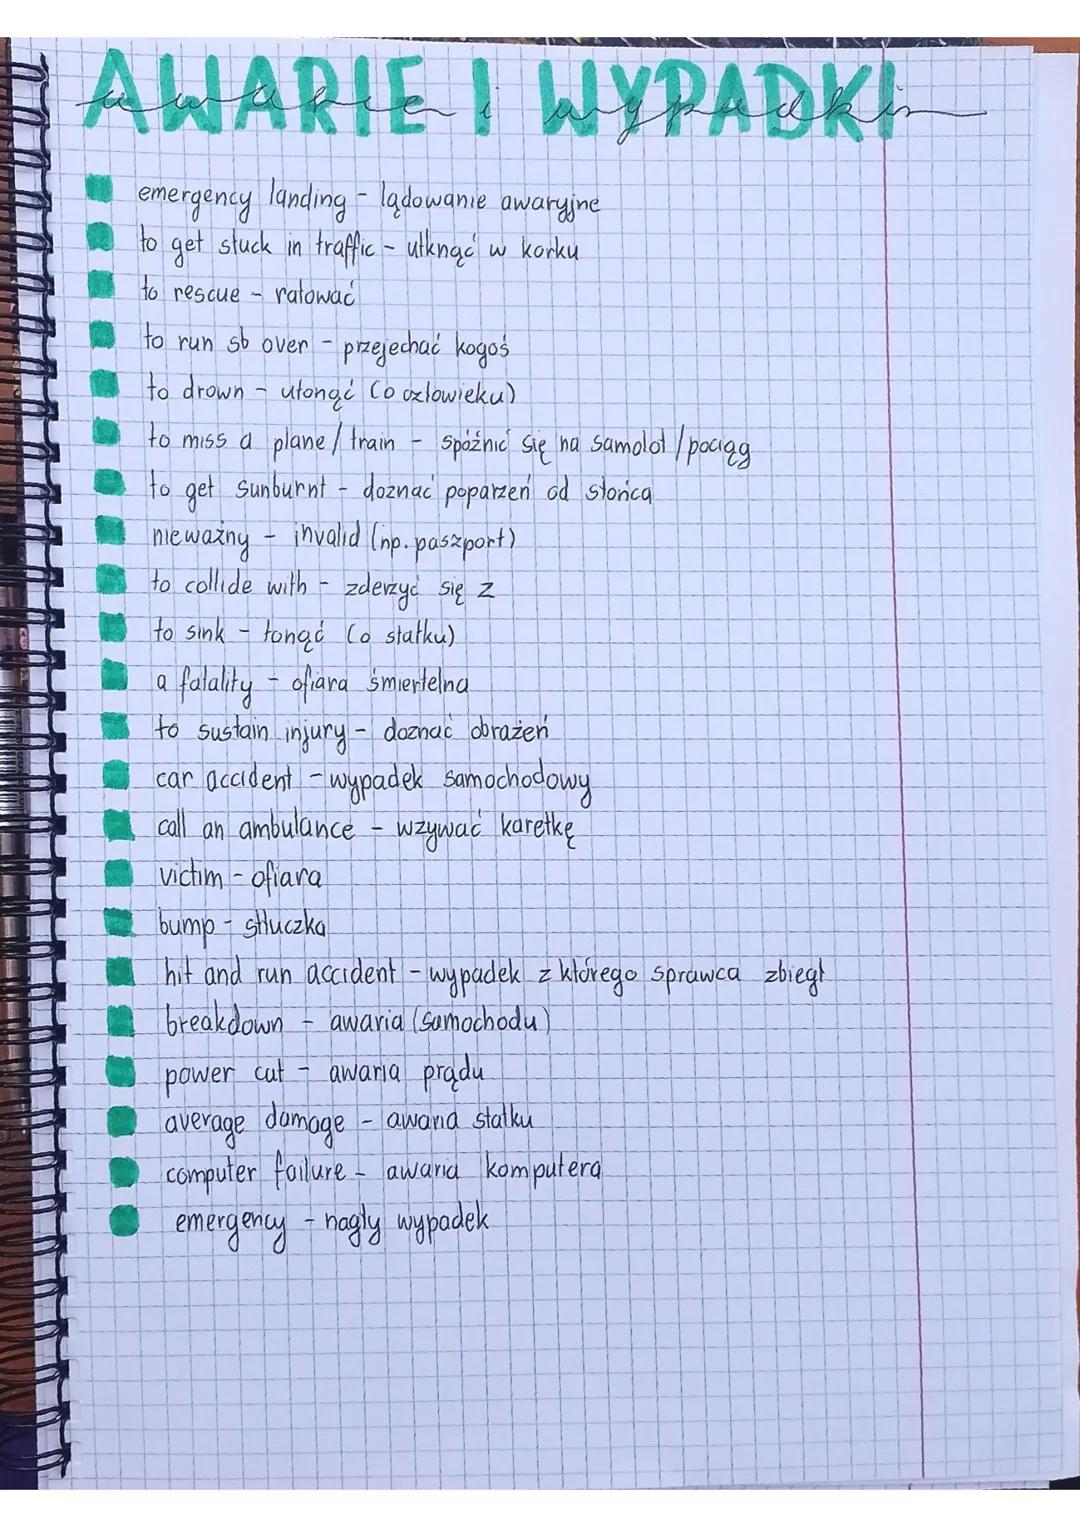 AWARIE I WYPADKI
awarie i wypadki
emergency landing - lądowanie awaryjne
to get stuck in traffic - utknąć w korku
to rescue - ratować
to run sb over - przejechać kogoś
to drown - utonąć (o człowieku)
to miss a plane/train - spóźnić się na samolot/pociąg
to get sunburnt - doznać poparzeń od słońca
nieważny - invalid (np. paszport)
to collide with - zderzyć się z
to sink - tonąć (o statku)
a fatality - ofiara śmiertelna
to sustain injury - doznać obrażeń
car accident - wypadek samochodowy
call an ambulance - wzywać karetkę
victim - ofiara
bump - stłuczka
hit and run accident - wypadek z którego sprawca zbiegł
breakdown - awaria (samochodu)
power cut - awaria prądu
average damage - awaria statku
computer failure - awaria komputera
emergency - nagły wypadek